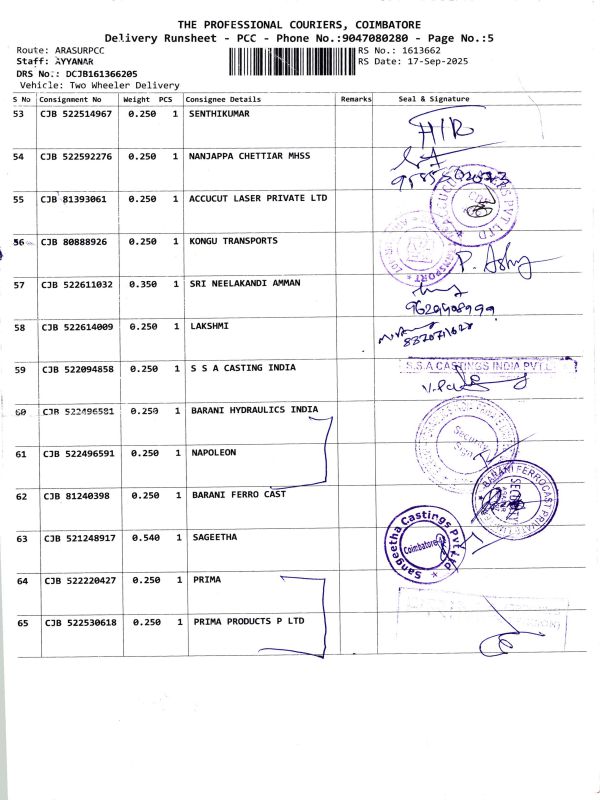 THE PROFESSIONAL COURIERS, COIMBATORE
Delivery Runsheet - PCC - Phone No.:9047080280 - Page No.:5
Route: ARASURPCC
RS No.: 1613662
Staff: AYYANAR
RS Date: 17-Sep-2025
DRS No.: DCJB161366205
Vehicle: Two Wheeler Delivery
S No Consignment No Weight PCS Consignee Details Remarks Seal & Signature
53 CJB 522514967 0.250 1 SENTHIKUMAR
54 CJB 522592276 0.250 1 NANJAPPA CHETTIAR MHSS
55 CJB 81393061 0.250 1 ACCUCUT LASER PRIVATE LTD
56 CJB 80888926 0.250 1 KONGU TRANSPORTS
P. Ashy
57 CJB 522611032 0.350 1 SRI NEELAKANDI AMMAN
58 CJB 522614009 0.250 1 LAKSHMI
59 CJB 522094858 0.250 1 S S A CASTING INDIA
S.S.A CASTINGS INDIA PVT.L
60 CJB 522496581 0.250 1 BARANI HYDRAULICS INDIA
Security
61 CJB 522496591 0.250 1 NAPOLEON
62 CJB 81240398 0.250 1 BARANI FERRO CAST
BARANI FERROCAST PRIVATE
SECURITY
63 CJB 521248917 0.540 1 SAGEETHA
Sangeetha Castings Pvt Ltd
Coimbatore
64 CJB 522220427 0.250 1 PRIMA
65 CJB 522530618 0.250 1 PRIMA PRODUCTS P LTD